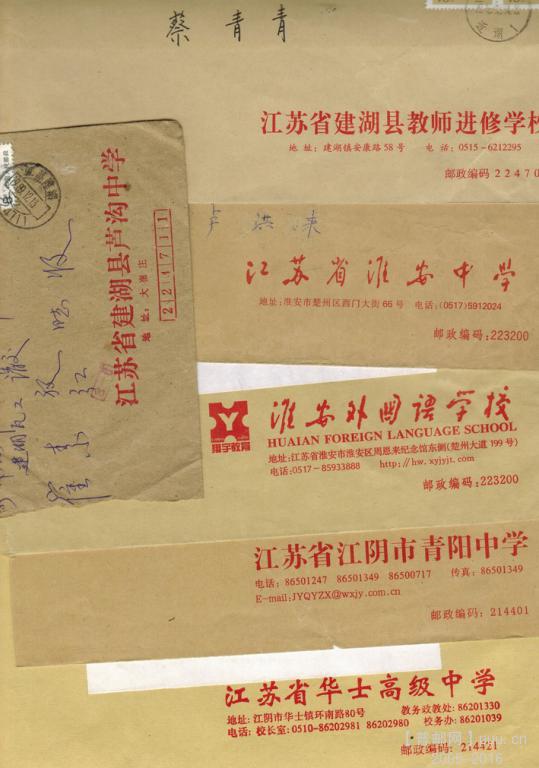 蔡青青
江苏省建湖县教师进修学校
地址：建湖镇安康路58号 电话：0515-6212295
邮政编码 22470
江苏省建湖县芦沟中学
地址：大崔庄
224711
江苏省淮安中学
地址：淮安市楚州区西门大街66号 电话：(0517)5912024
邮政编码：223200
翔宇教育
淮安外国语学校
HUAIAN FOREIGN LANGUAGE SCHOOL
地址：江苏省淮安市淮安区周恩来纪念馆东侧(楚州大道199号)
电话：0517-85933888 http://hw.xyjyjt.com
邮政编码：223200
江苏省江阴市青阳中学
电话：86501247 86501349 86500717 传真：86501349
E-mail:JYQYZX@wxjy.com.cn
邮政编码：214401
江苏省华士高级中学
地址：江阴市华士镇环南路80号 教务政教处：86201330
电话：校长室：0510-86202981 86202980 校务办：86201039
邮政编码：214421
[普邮网]
2005-2016